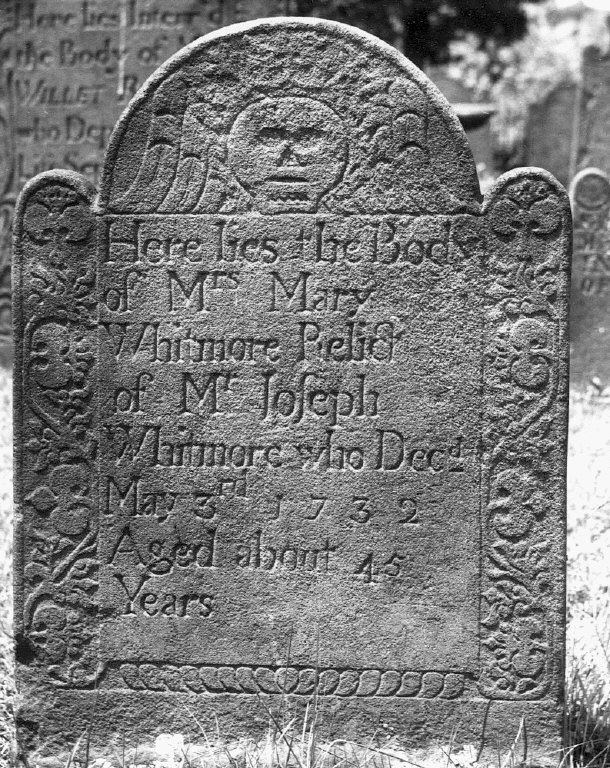 Here lies Interr'd
the Body of
WILLET
who Dep
Here lies the Body
of Mrs Mary
Whitmore Relict
of Mr Joſeph
Whitmore who Decd
May 3rd 1732
Aged about 45
Years